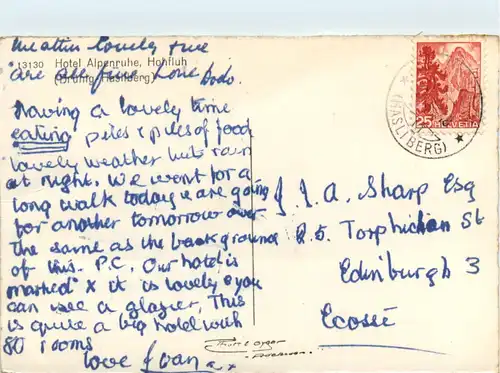 Weather lovely
13130 Hotel Alpenruhe, Hohfluh
(Brünig-Hasliberg)
are all fine love Dodo.
Having a lovely time
eating piles & piles of food
lovely weather but rain
at night. We went for a
long walk today & are going
for another tomorrow over
the same as the background
of this. P.C. Our hotel is
marked x it is lovely & you
can see a glazier, This
is quite a big hotel with
80 rooms
love
25 HELVETIA
(HASLIBERG)
J. A. Sharp Esq
5 Torphichen St
Edinburgh 3
Ecosse